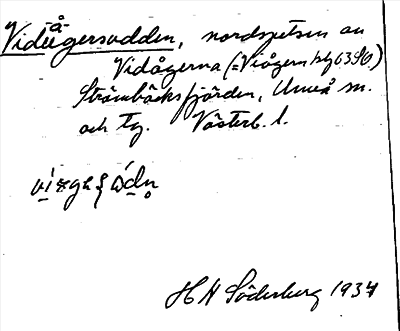 "Vidågersudden, nordspetsen av
Vidågerna (=Viågern
Strömbäcksfjärden, Umeå sn.
och tg. Västerb. l.
H N Söderberg 1934